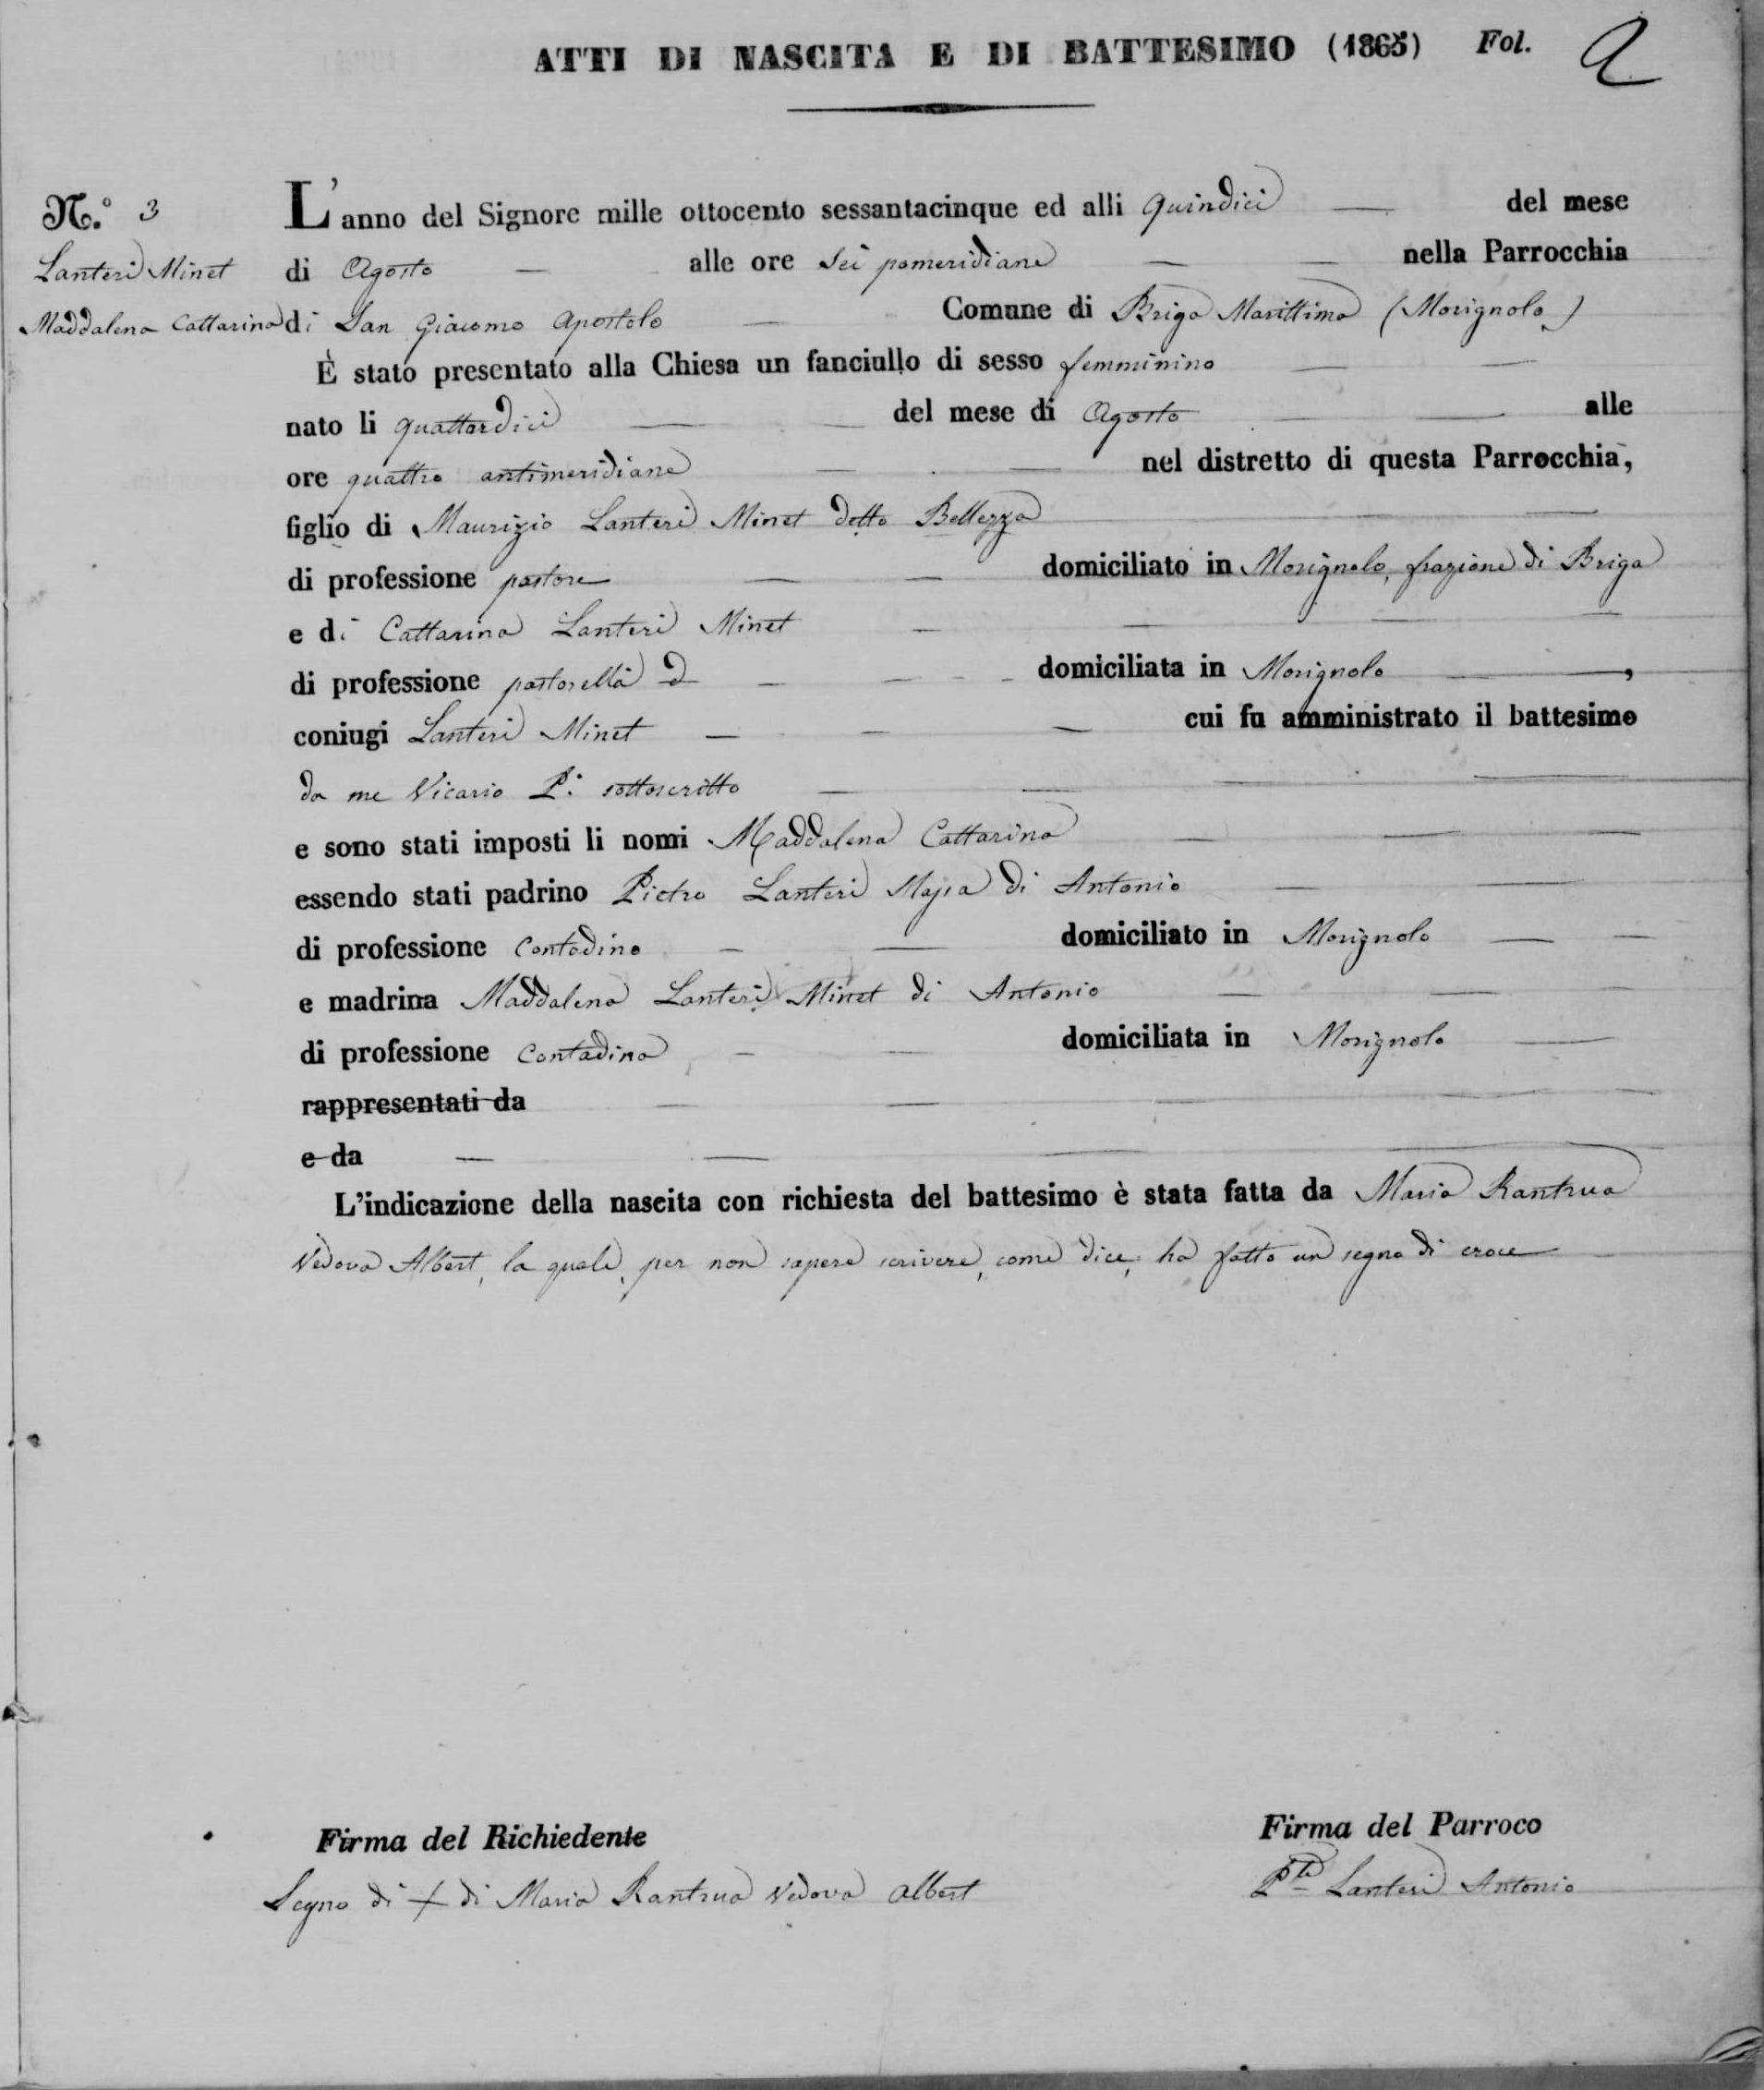 ATTI DI NASCITA E DI BATTESIMO (1865) Fol. 2
N.º 3
Lanteri Minet
Maddalena Cattarina
L'anno del Signore mille ottocento sessantacinque ed alli quindici del mese
di Agosto alle ore sei pomeridiane nella Parrocchia
di San Giacomo Apostolo Comune di Briga Marittima (Morignolo)
È stato presentato alla Chiesa un fanciullo di sesso femminino
nato li quattordici del mese di Agosto alle
ore quattro antimeridiane nel distretto di questa Parrocchia,
figlio di Maurizio Lanteri Minet detto Bellezza
di professione pastore domiciliato in Morignolo, frazione di Briga
e di Cattarina Lanteri Minet
di professione pastorella domiciliata in Morignolo,
coniugi Lanteri Minet cui fu amministrato il battesimo
da me Vicario P. sottoscritto
e sono stati imposti li nomi Maddalena Cattarina
essendo stati padrino Pietro Lanteri di Antonio
di professione Contadino domiciliato in Morignolo
e madrina Maddalena Lanteri Minet di Antonio
di professione Contadina domiciliata in Morignolo
rappresentati da
e da
L'indicazione della nascita con richiesta del battesimo è stata fatta da Maria Rantrua
Vedova Albert, la quale, per non sapere scrivere, come dice, ha fatto un segno di croce
Firma del Richiedente
Segno di + di Maria Rantrua Vedova Albert
Firma del Parroco
Lanteri Antonio